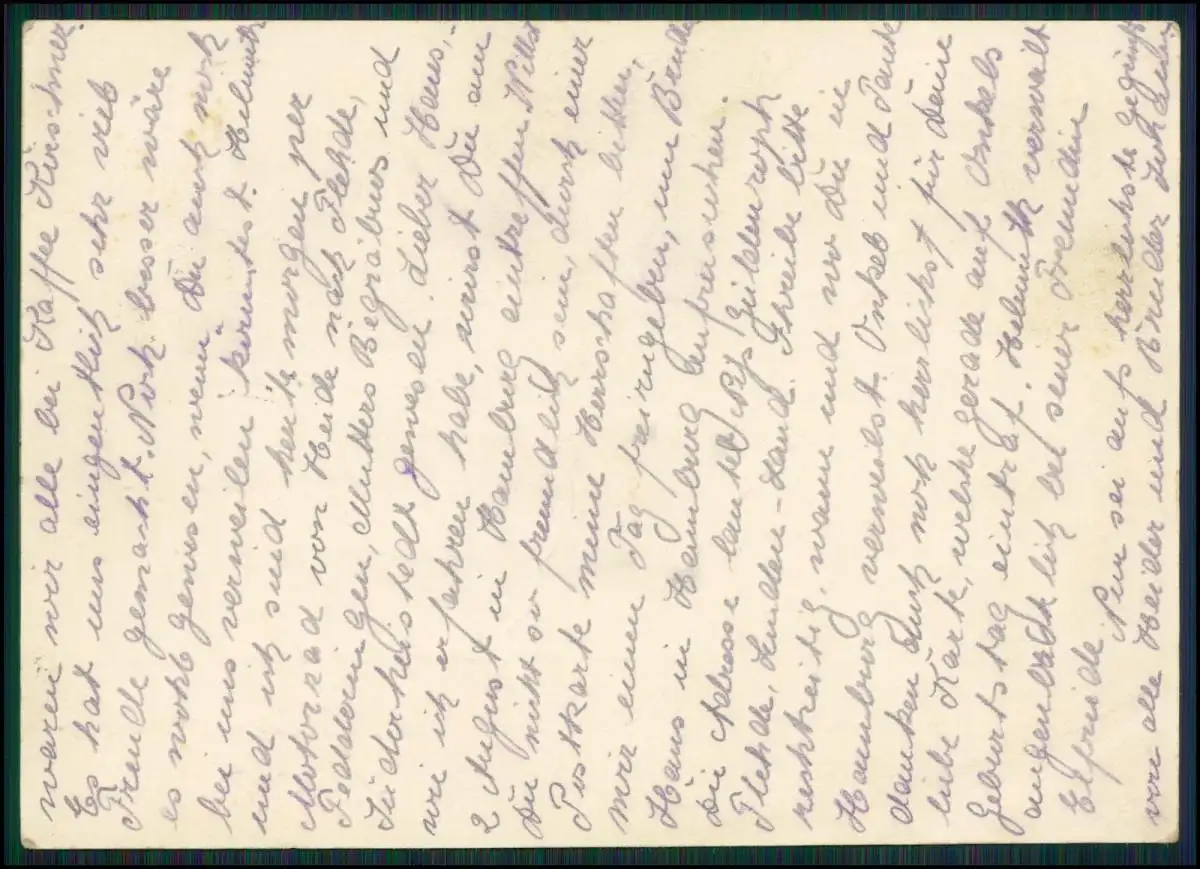 waren wir alle bei Kaffee Kirschner.
Es hat uns eingentlich sehr viel
Freude gemacht. Noch besser wäre
es wohl gewesen, wenn Du auch noch
bei uns verweilen könntest. Helmuth
und ich sind heut morgen per
Motorrad von Heide nach Flehde,
Feddering en, Mutters Begräbnis und
Süderheistedt gewesen. Lieber Hans,
wie ich erfahren habe, wirst Du am
2 August in Hamburg eintreffen. Willst
Du nicht so freundlich sein, durch einer
Postkarte meine Herrschaften bitten,
mir einen Tag freizugeben, um Bruder
Hans in Hamburg aufzusuchen.
Die Adresse lautet
Flehde, Lunden-Land. Schreibe bitte
rechtzeitig, wann und wo Du in
Hamburg verweilst. Onkel und Tante
danken auch noch herzlichst für Deine
liebe Karte, welche gerade auf Onkels
Geburtstag eintraf. Helmuth verweilt
augenblicklich bei seiner Freundin
Elfriede. Nun sei aufs herzlichste gegrüßt
von alle Heider und Bruder